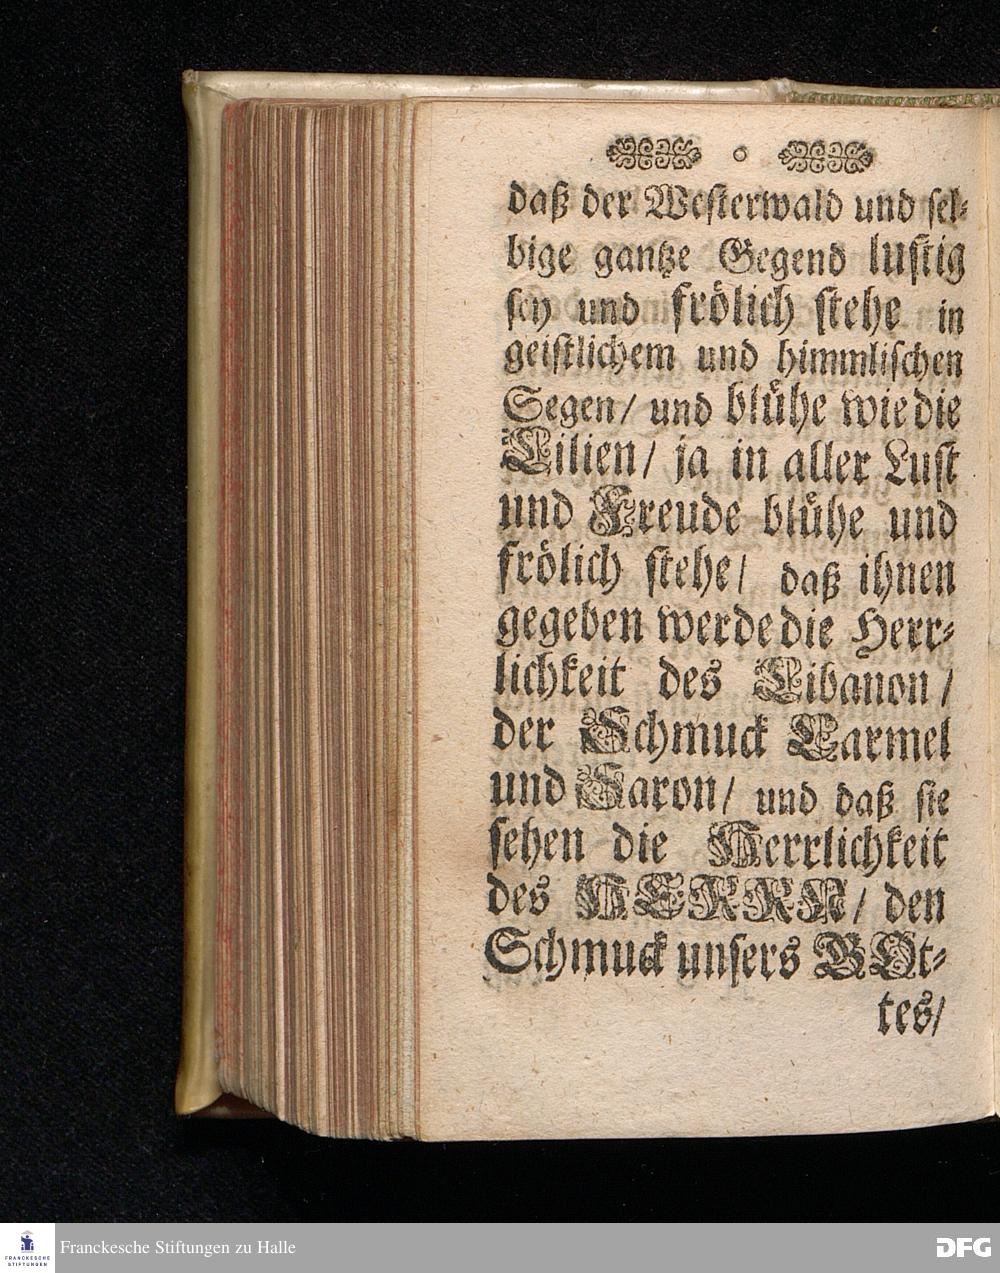 daß der Westerwald und sel-
bige gantze Gegend lustig
sey und frölich stehe in
geistlichem und himmlischen
Segen / und blühe wie die
Lilien / ja in aller Lust
und Freude blühe und
frölich stehe / daß ihnen
gegeben werde die Herr-
lichkeit des Libanon /
der Schmuck Carmel
und Saron / und daß sie
sehen die Herrlichkeit
des HERRN / den
Schmuck unsers GOt-
tes /
FRANCKESCHE
STIFTUNGEN
Franckesche Stiftungen zu Halle
DFG